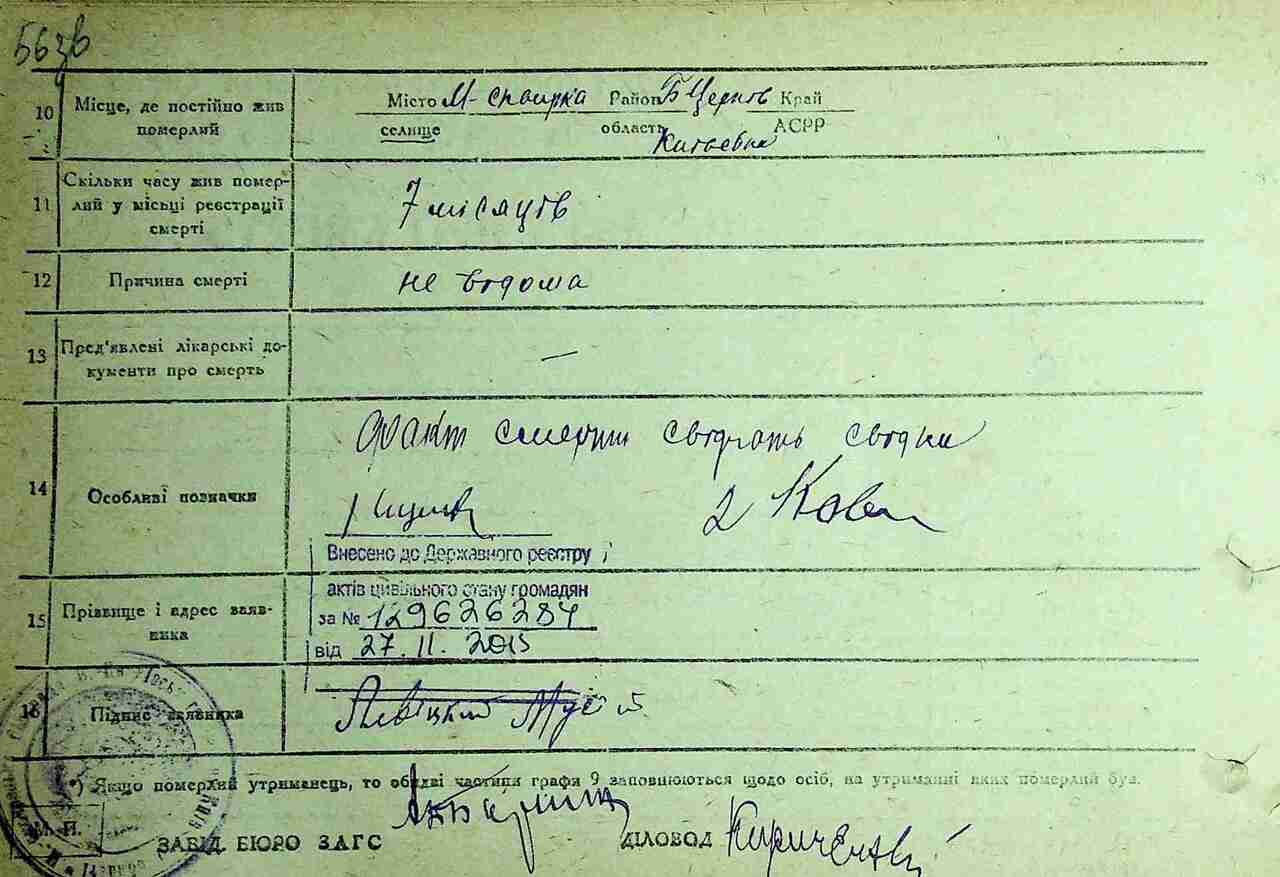 563в
10 Місце, де постійно жив Місто М-Сквирка Район Б Церков Край
померлий селище область АСРР
Київська
11 Скільки часу жив помер-
лий у місьці реєстрації 7 місяців
смерті
12 Причина смерті не відома
13 Пред'явлені лікарські до- —
кументи про смерть
14 Особливі позначки факт смерти свідчать свідки
1 2
Внесено до Державного реєстру
актів цивільного стану громадян
за № 129626284
від 27.11.2015
15 Прізвище і адрес заяв-
ника
16 Підпис заявника Левіцкий Мусій
*) Якщо померлий утриманець, то обидві частини графи 9 заповнюються щодо осіб, на утриманні яких померлий був.
М. П.
ЗАВІД. БЮРО ЗАГС ДІЛОВОД